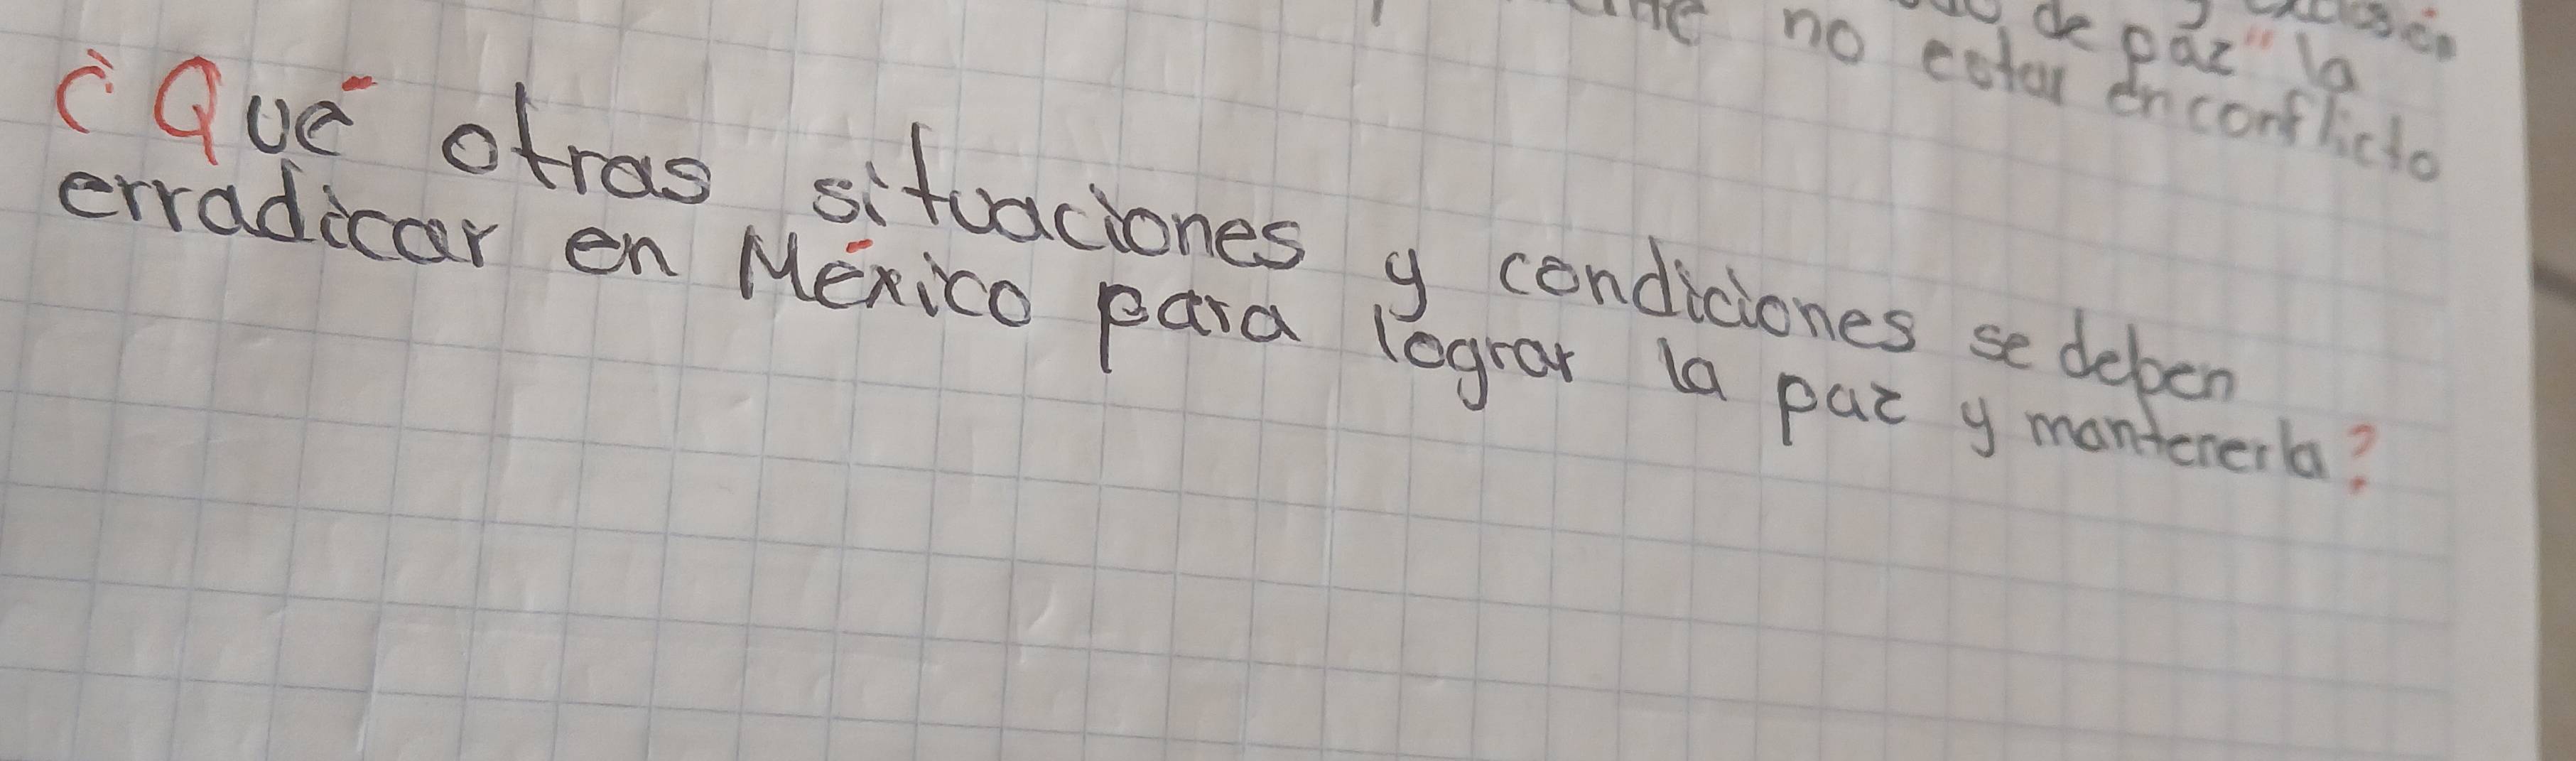 de paz" la
no estar en conflicto
¿Qué otras situaciones y condiciones se deben
erradicar en México para lograr la paz y mantenerla?